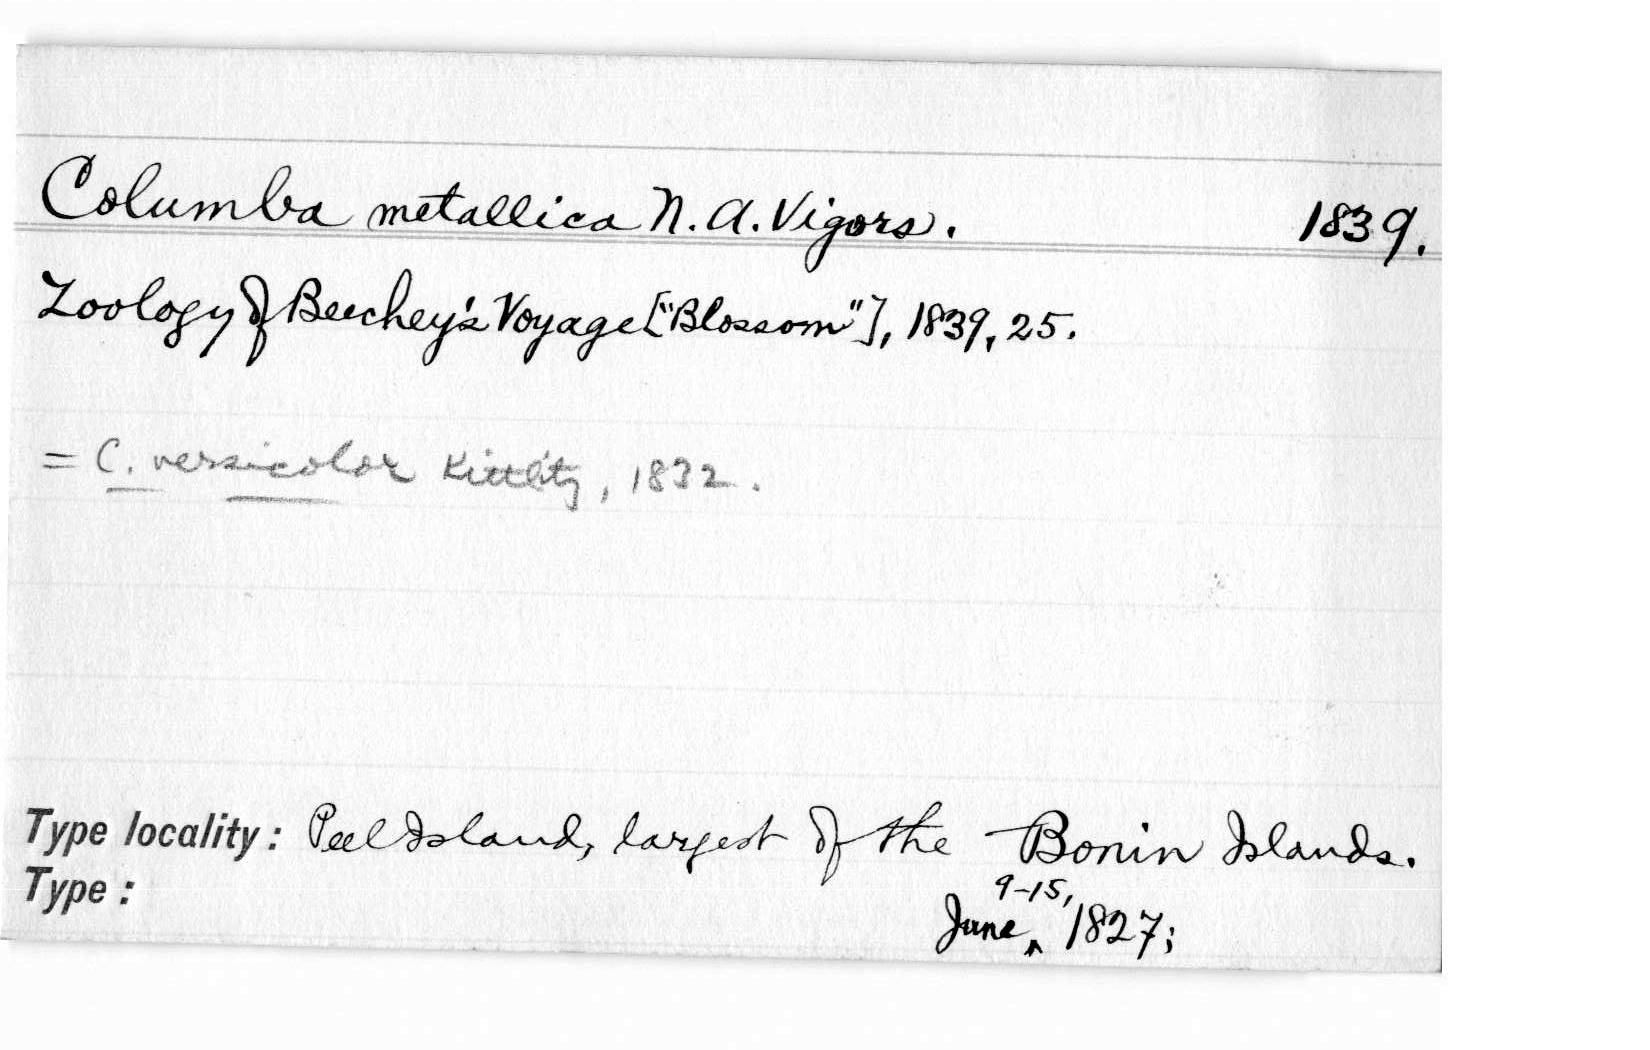 Columba metallica N. A. Vigors. 1839.
Zoology of Beechey's Voyage ["Blossom"], 1839, 25.
= C. versicolor Kittlitz, 1832.
Type locality: Peel Island, largest of the Bonin Islands.
Type:
9-15,
June ‸ 1827;